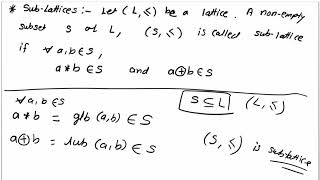 * Sub-lattices :- Let (L, ≤) be a lattice. A non-empty
subset S of L, (S, ≤) is called sub-lattice
if ∀ a, b ∈ S,
a * b ∈ S and a ⊕ b ∈ S
∀ a, b ∈ S
a * b = glb (a, b) ∈ S
a ⊕ b = lub (a, b) ∈ S
S ⊆ L (L, ≤)
(S, ≤) is sublattice